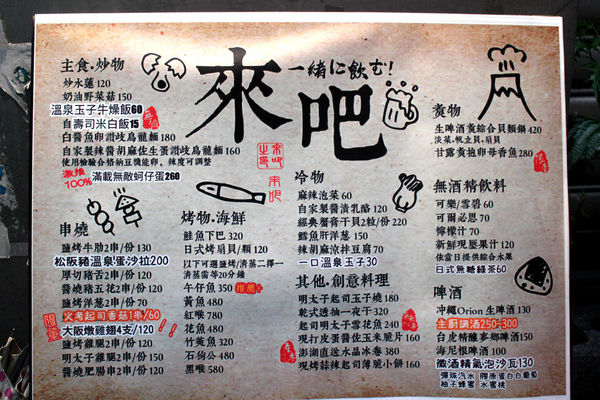 來吧
一緒に飲む!
主食.炒物
炒水蓮 120
奶油野菜菇 150
溫泉玉子牛燥飯60
自壽司米白飯15
白醬魚卵讚岐烏龍麵 180
自家製辣醬胡麻佐生蛋讚岐烏龍麵 160
使用檢驗合格納豆機能卵，辣度可調整
激推
100%
滿載無敵蚵仔蛋260
串燒
鹽烤牛肋2串/份 130
松阪豬溫泉蛋沙拉200
厚切豬舌2串/份 120
醬燒豬五花2串/份 120
鹽烤洋蔥2串/份 70
火烤起司香菇1串/60
限量
大阪燉雞翅4支/120
!!
鹽烤雞腿2串/份 120
明太子雞腿2串/份 150
醬燒肥腸2串/份 120
烤物.海鮮
鮭魚下巴 320
日式烤扇貝/顆 120
以下可選鹽烤/清蒸二擇一
清蒸需等20分鐘
午仔魚 350
推薦
黃魚 480
紅喉 780
花魚 480
竹莢魚 320
石狗公 480
黑喉 580
來吧
冷物
麻辣泡菜 60
自家製醬漬乳酪 120
經典蟹膏干貝2粒/份 220
鱈魚肝洋蔥 150
辣胡麻涼拌豆腐 70
一口溫泉玉子30
其他.創意料理
明太子起司玉子燒 180
乾式透抽一夜干 320
起司明太子雪花魚 240
現打皮蛋醬佐玉米脆片 160
澎湖直送水晶冰卷 380
現烤蒜辣起司薄脆小餅 160
煮物
生啤酒煮綜合貝類鍋 420
淡菜.帆立貝.扇貝
甘露煮抱卵母香魚 280
無酒精飲料
可樂/雪碧 60
可爾必思 70
檸檬汁 70
新鮮現壓果汁 120
依當日提供綜合水果
日式無糖綠茶60
啤酒
沖繩Orion 生啤酒 130
主廚調酒250-300
台虎精釀麥鄉啤酒150
海尼根啤酒 100
微酒精氣泡沙瓦130
彈珠汽水 膠原蛋白白葡萄
柚子蜂蜜 水蜜桃